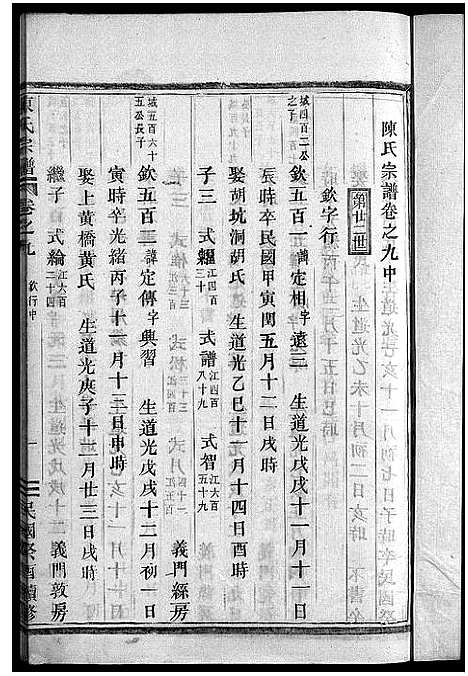 陳氏宗譜卷之九中
第廿二世
欽字行
城四百二公之子
欽五百一諱定相字遠三 生道光戊戌十一月十一日
辰時卒民國甲寅閏五月十二日戌時
娶胡坑洞胡氏 生道光乙巳十一月十四日酉時
子三 式縕江四百三十 式譜江四百八十九 式智江大百五十九 義門經房
城五百六十五公長子
欽五百三諱定傳字興習 生道光戊戌十二月初一日
寅時卒光緒丙子十二月十三日申時
娶上黄橋黄氏 生道光庚子十二月廿三日戌時
繼子 式綸江大百二十四 義門敦房
陳氏宗譜 卷之九 欽行中 一 民國癸酉續修